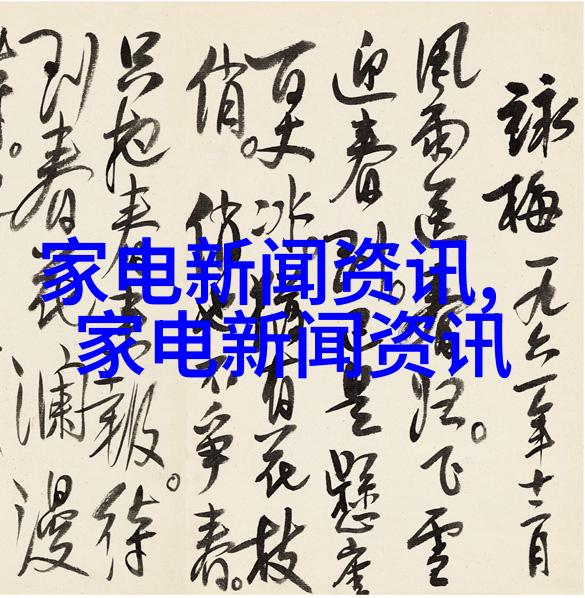 詠梅
一九六一年十二月
風雨送春歸。飞雪
迎春到。已是懸崖
百丈冰。猶有花枝
俏。俏也不爭春。
只把春来報。待
到春花瀾漫
家电新闻资讯,
家电新闻资讯